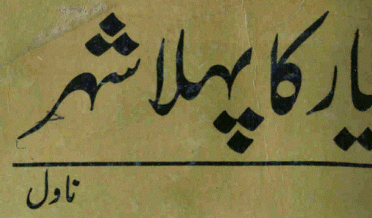 یار کا پہلا شہر
ناول